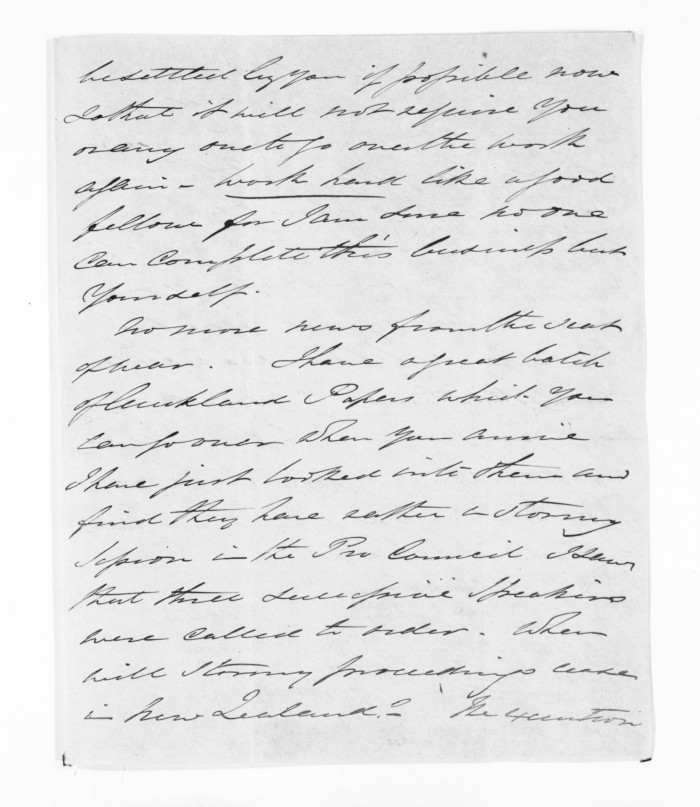 be settled by you if possible now
so that it will not require you
or any one to go over the work
again - work hard like a good
fellow for I am sure no one
can complete this business but
yourself.
No more news from the seat
of war. I have a great batch
of Auckland Papers which you
can go over when you arrive
I have just looked into them and
find they have rather a stormy
session in the Pro Council I saw
that three successive speakers
were called to order. When
will stormy proceedings cease
in New Zealand? - The